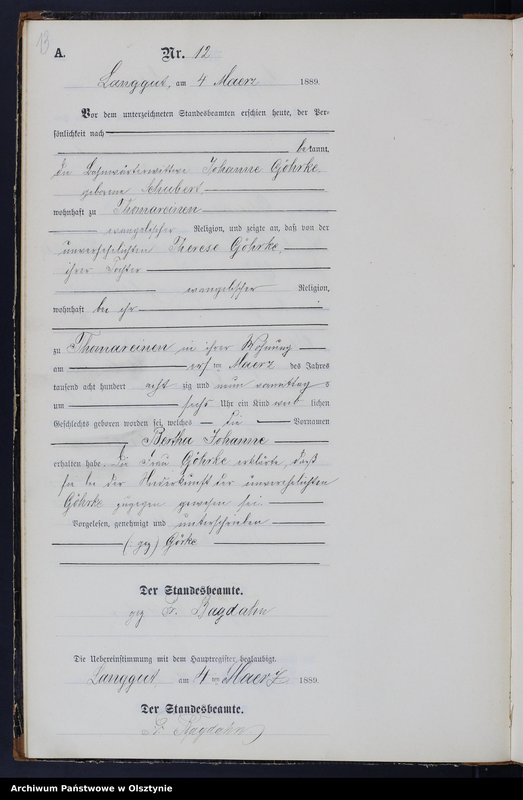 13
A.
Nr. 12
Langgut, am 4 Maerz 1889.
Vor dem unterzeichneten Standesbeamten erschien heute, der Per-
sönlichkeit nach
bekannt,
die Bahnwärterwittwe Johanne Göhrke
geborene Schubert
wohnhaft zu Thomareinen
evangelischer Religion, und zeigte an, daß von der
unverehelichten Therese Göhrke,
ihrer Tochter
evangelischer Religion,
wohnhaft bei ihr
zu Thomareinen in ihrer Wohnung
am ten Maerz des Jahres
tausend acht hundert acht zig und neun vormittags
um sechs Uhr ein Kind weib lichen
Geschlechts geboren worden sei, welches die Vornamen
Bertha Johanne
erhalten habe. Die Frau Göhrke erklärte, daß
sie bei der Niederkunft der unverehelichten
Göhrke zugegen gewesen sei.
Vorgelesen, genehmigt und unterschrieben
(: gez) Görke
Der Standesbeamte.
gez Fr. Bagdahn
Die Uebereinstimmung mit dem Hauptregister beglaubigt.
Langgut am 4 ten Maerz 1889.
Der Standesbeamte.
Fr. Bagdahn
Archiwum Państwowe w Olsztynie